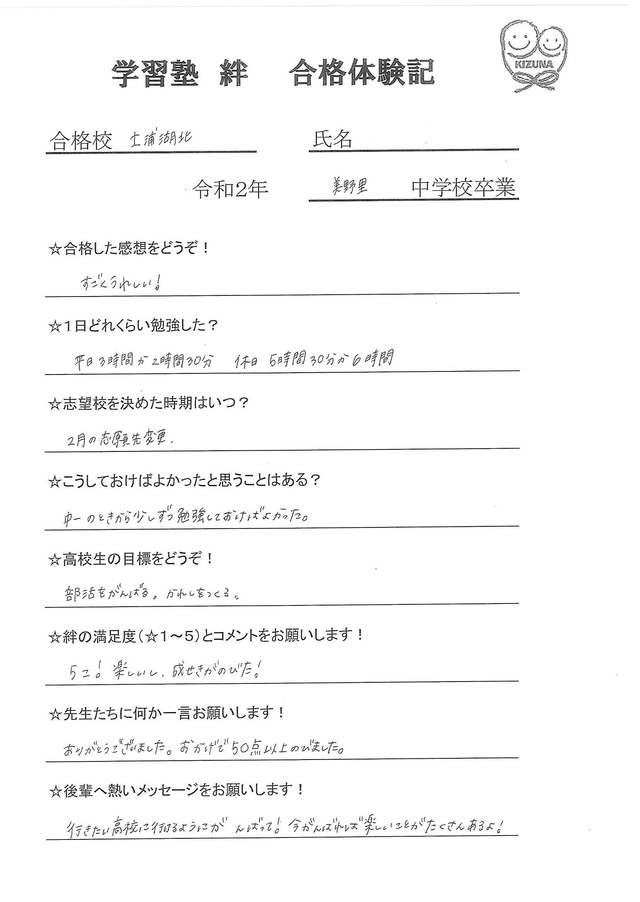 学習塾 絆 合格体験記
KIZUNA
合格校 土浦湖北 氏名
令和2年 美野里 中学校卒業
☆合格した感想をどうぞ！
すごくうれしい！
☆1日どれくらい勉強した？
平日3時間か2時間30分 休日 5時間30分か6時間
☆志望校を決めた時期はいつ？
2月の志願先変更.
☆こうしておけばよかったと思うことはある？
中一のときから少しずつ勉強しておけばよかった。
☆高校生の目標をどうぞ！
部活をがんばる。かれしをつくる。
☆絆の満足度(☆1～5)とコメントをお願いします！
5こ！楽しいし、成せきがのびた！
☆先生たちに何か一言お願いします！
ありがとうございました。おかげで50点以上のびました。
☆後輩へ熱いメッセージをお願いします！
行きたい高校に行けるようにがんばって！今がんばれば楽しいことがたくさんあるよ！